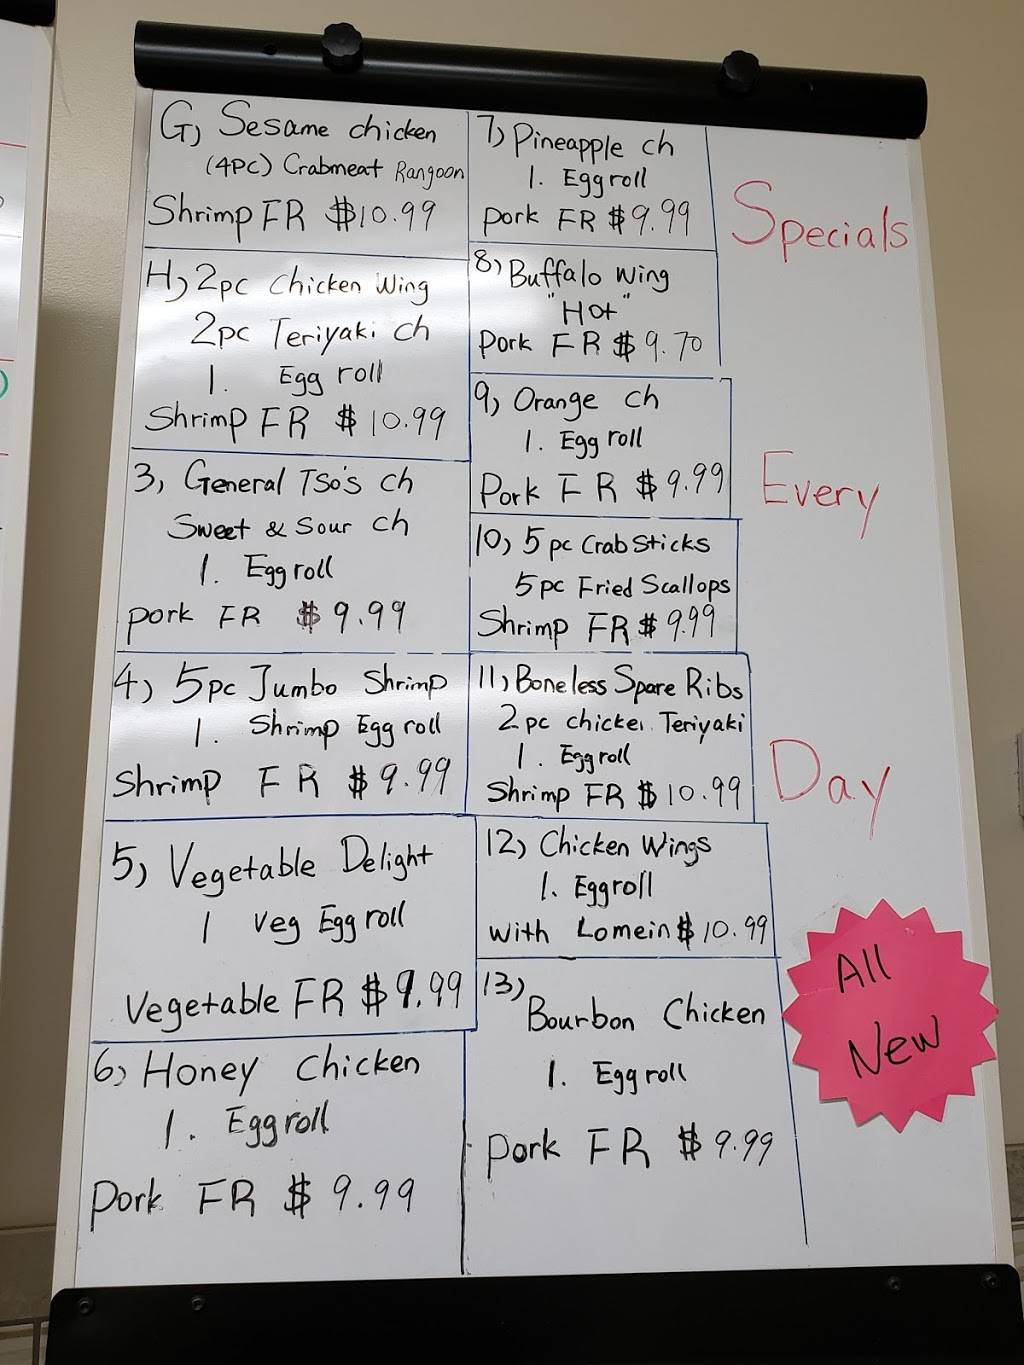 G) Sesame chicken
(4PC) Crabmeat Rangoon
Shrimp FR $10.99
H) 2pc Chicken Wing
2pc Teriyaki ch
1. Egg roll
Shrimp FR $10.99
3) General TSo's ch
Sweet & Sour ch
1. Egg roll
pork FR $9.99
4) 5pc Jumbo Shrimp
1. Shrimp Egg roll
Shrimp FR $9.99
5) Vegetable Delight
1 veg Egg roll
Vegetable FR $9.99
6) Honey chicken
1. Egg roll
Pork FR $9.99
7) Pineapple ch
1. Egg roll
pork FR $9.99
8) Buffalo wing
"Hot"
Pork FR $9.70
9) Orange ch
1. Egg roll
Pork FR $9.99
10) 5pc Crab Sticks
5pc Fried Scallops
Shrimp FR $9.99
11) Boneless Spare Ribs
2pc chicken Teriyaki
1. Egg roll
Shrimp FR $10.99
12) Chicken Wings
1. Egg roll
with Lomein $10.99
13)
Bourbon Chicken
1. Egg roll
pork FR $9.99
Specials
Every
Day
All
New